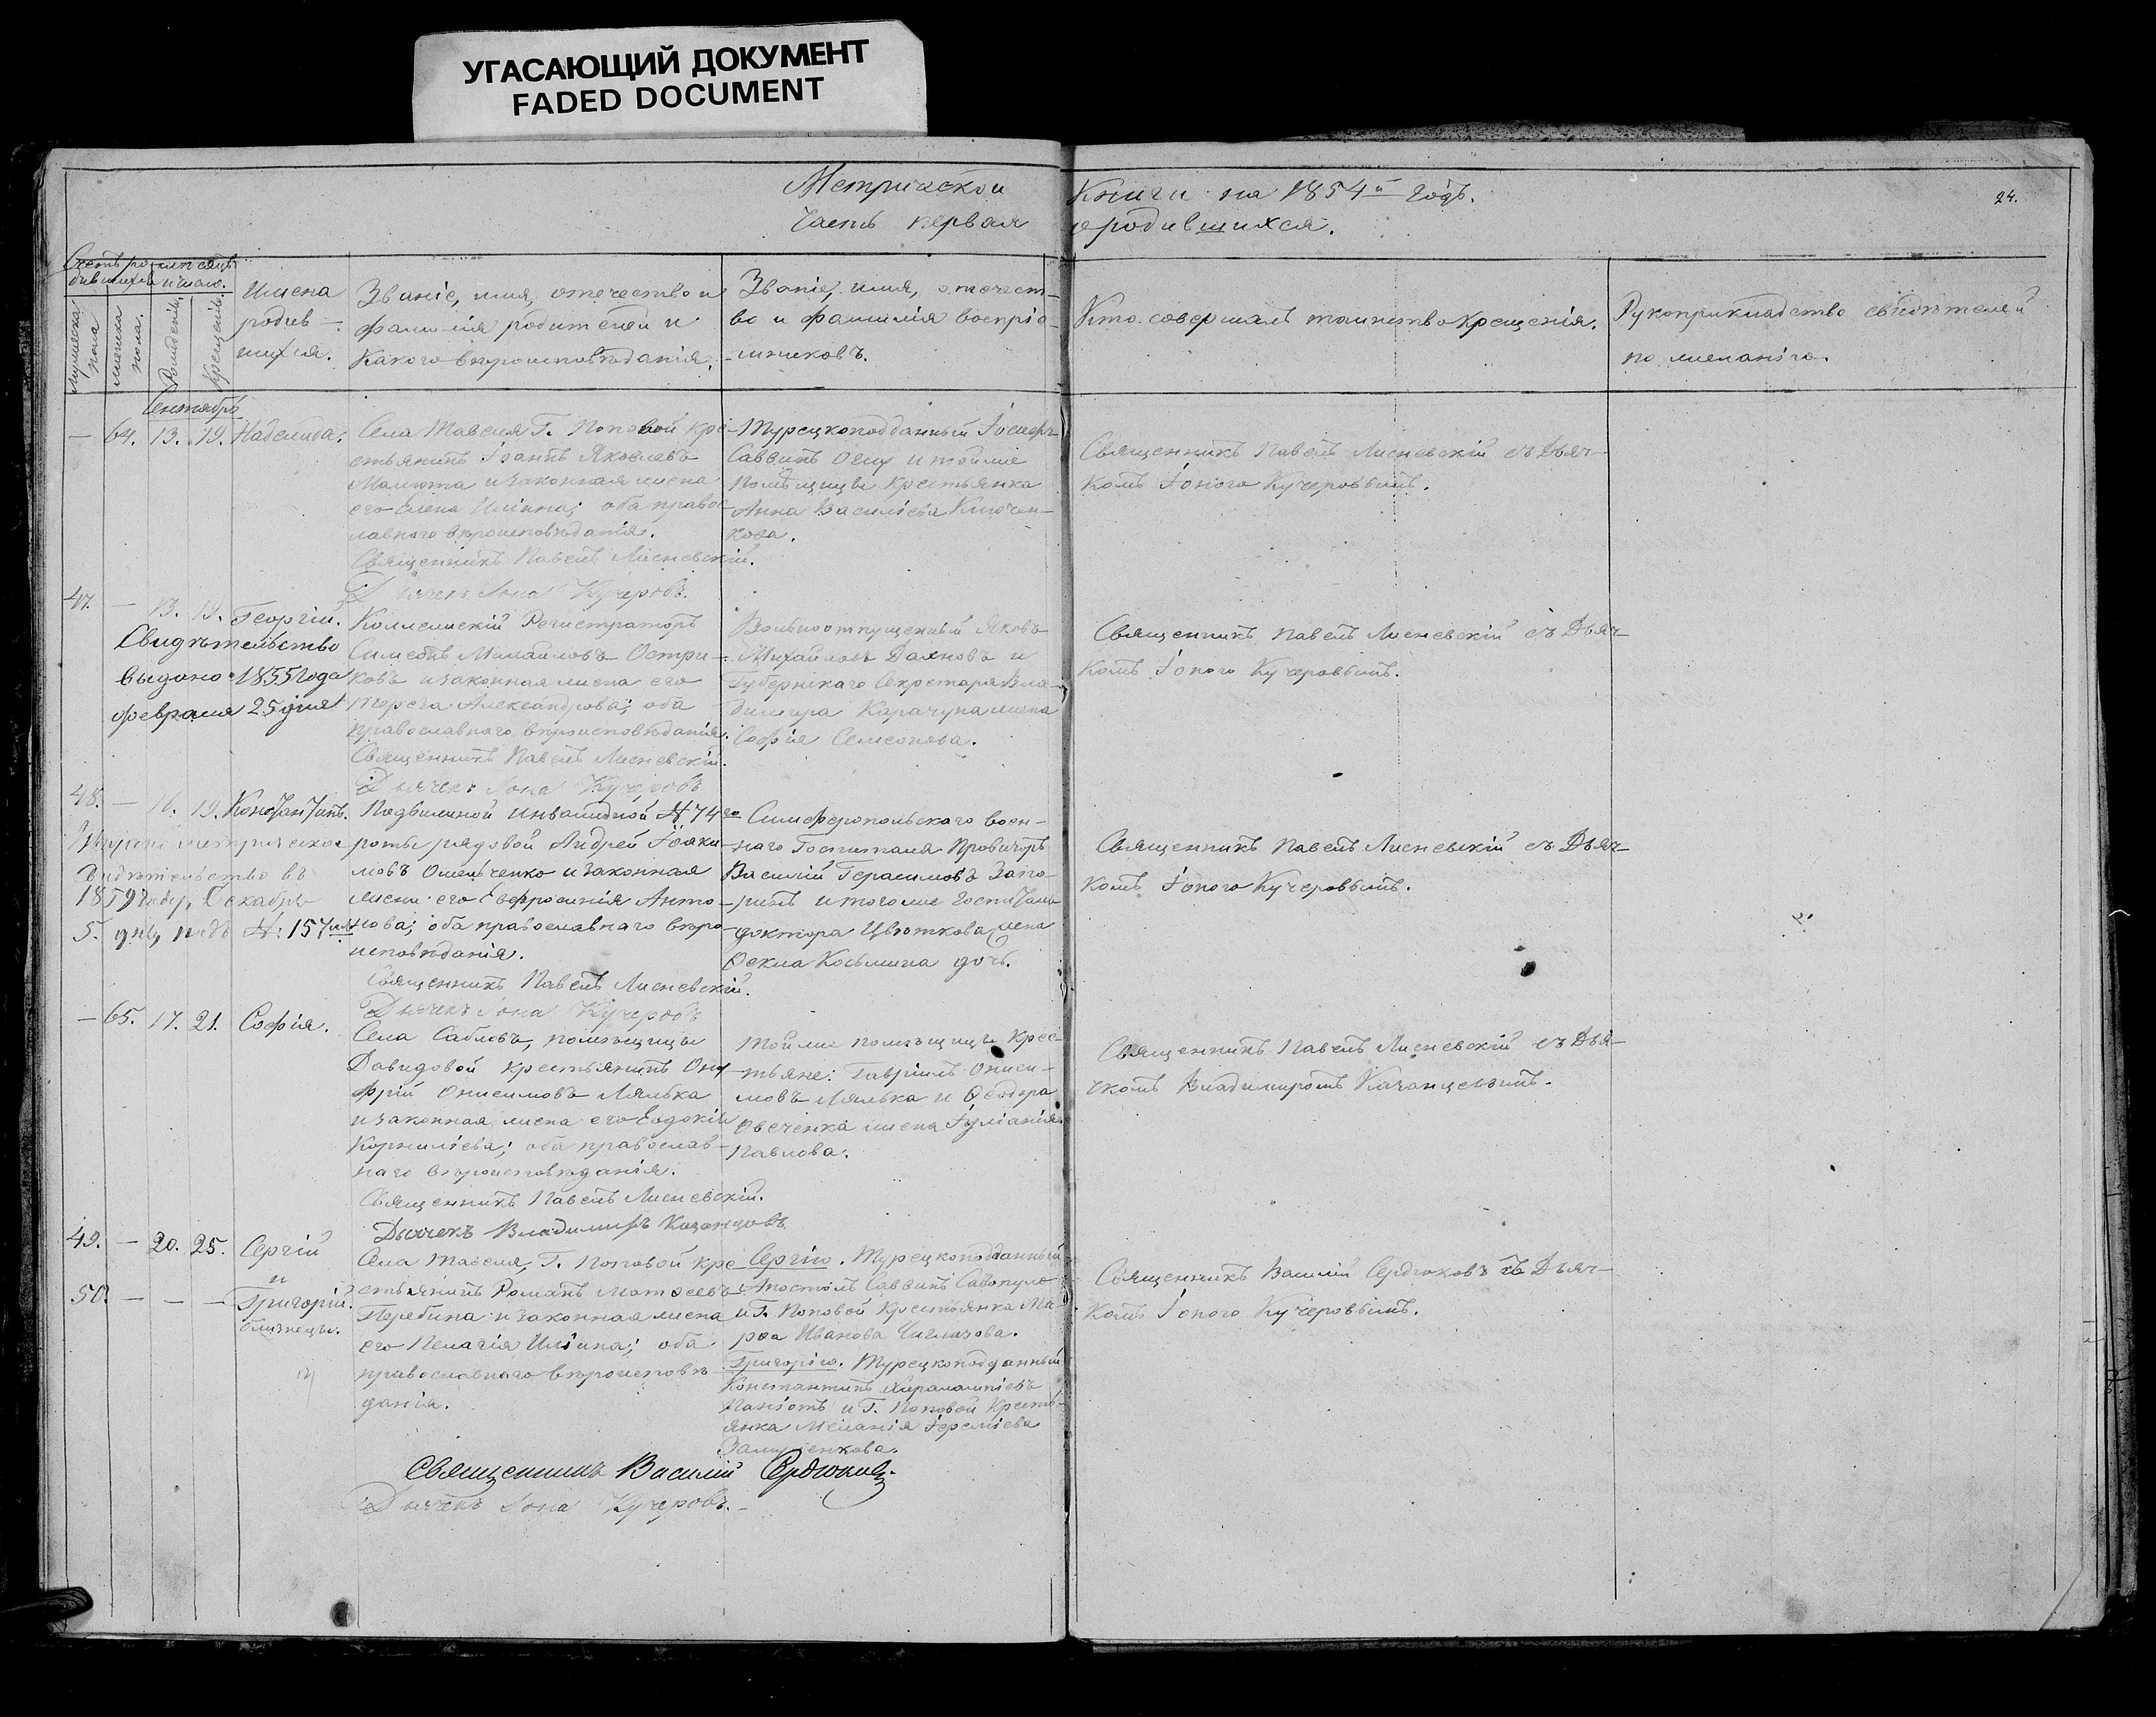 УГАСАЮЩИЙ ДОКУМЕНТ
FADED DOCUMENT
Метрической
Часть первая
Книги на 1854й годъ.
о родившихся.
24.
Счетъ ро-
дившихся
мѣсяцъ
и число.
Мужеска
пола
женска
пола.
Рожденія.
Крещенія.
Имена
родив-
шихся.
Званіе, имя, отечество и
фамилія родителей и
какого вѣроисповѣданія.
Званіе, имя, отечест-
во и фамилія воспріе-
мниковъ.
Кто совершалъ таинство Крещенія.
Рукоприкладство свидѣтелей
по желанію.
Сентябрь
— 64. 13. 19. Надежда.
Села Тавеля Г. Поповой кре-
стьянинъ Іоаннъ Яковлевъ
Малюта и законная жена
его Елена Ильина; оба правос-
лавного вѣроисповѣданія.
Священникъ Павелъ Лисневскій.
Дьячекъ Іона Кучеровъ.
Турецкоподданный Іосифъ
Саввинъ и тойже
помѣщицы крестьянка
Анна Васильева Ключен-
кова.
Священникъ Павелъ Лисневскій съ Дьяч-
комъ Іоною Кучеровымъ.
47. — 13. 19. Георгій.
Свидѣтельство
выдано 1855 года
февраля 25 дня
Коллежскій Регистраторъ
Симеонъ Михайловъ Остри-
ковъ и законная жена его
Тереза Александрова; оба
православнаго вѣроисповѣданія.
Священникъ Павелъ Лисневскій.
Дьячекъ Іона Кучеровъ
Вольноотпущенный Яковъ
Михайловъ Дахновъ и
Губернскаго Секретаря Вла-
димира Карачуна жена
Софія Семеонова.
Священникъ Павелъ Лисневскій съ Дьяч-
комъ Іоною Кучеровымъ.
48. — 16. 19. Константинъ.
метрическое
видѣтельство въ
1859 году, Декабря
5. дня, подъ №: 157
Подвижной инвалидной № 74го
роты рядовой Андрей Іоаки-
мовъ Омельченко и законная
жена его Евфросинія Анто-
нова; оба православнаго вѣро-
исповѣданія.
Священникъ Павелъ Лисневскій.
Дьячекъ Іона Кучеровъ
Симферопольскаго воен-
наго Госпиталя Провизоръ
Василій Герасимовъ
и тогоже Госпиталя
доктора Цвѣткова жена
Ѳекла Косьмина дочь.
Священникъ Павелъ Лисневскій съ Дьяч-
комъ Іоною Кучеровымъ.
— 65. 17. 21. Софія.
Села Сабловъ, помѣщицы
Давидовой крестьянинъ Ону-
фрій Онисимовъ Лялька
и законная жена его Евдокія
Корнильева; оба православ-
наго вѣроисповѣданія.
Священникъ Павелъ Лисневскій.
Дьячекъ Владимиръ Казанцовъ
Тойже помѣщицы крес-
тьяне: Гавріилъ Ониси-
мовъ Лялька и Ѳеодора
Овеченка жена Іуліанія
Павлова.
Священникъ Павелъ Лисневскій съ Дья-
чкомъ Владимиромъ Казанцевымъ.
49. — 20. 25. Сергій
и
50. — — — Григорій.
близнецы.
Села Тавеля, Г. Поповой кре-
стьянинъ Романъ Матѳеевъ
Перебина и законная жена
его Пелагія Ильина; оба
православнаго вѣроисповѣ-
данія.
Сергію. Турецкоподданный
Апостолъ Саввинъ Савопуло
и Г. Поповой крестьянка Ма-
рѳа Иванова Чиглазова.
Григорію. Турецкоподданный
Константинъ Харалампіевъ
Паніотъ и Г. Поповой крестъ-
янка Меланія Іереміева
Священникъ Василій Сердюковъ съ Дьяч-
комъ Іоною Кучеровымъ.
Священникъ Василій Сердюковъ.
Дьячекъ Іона Кучеровъ.